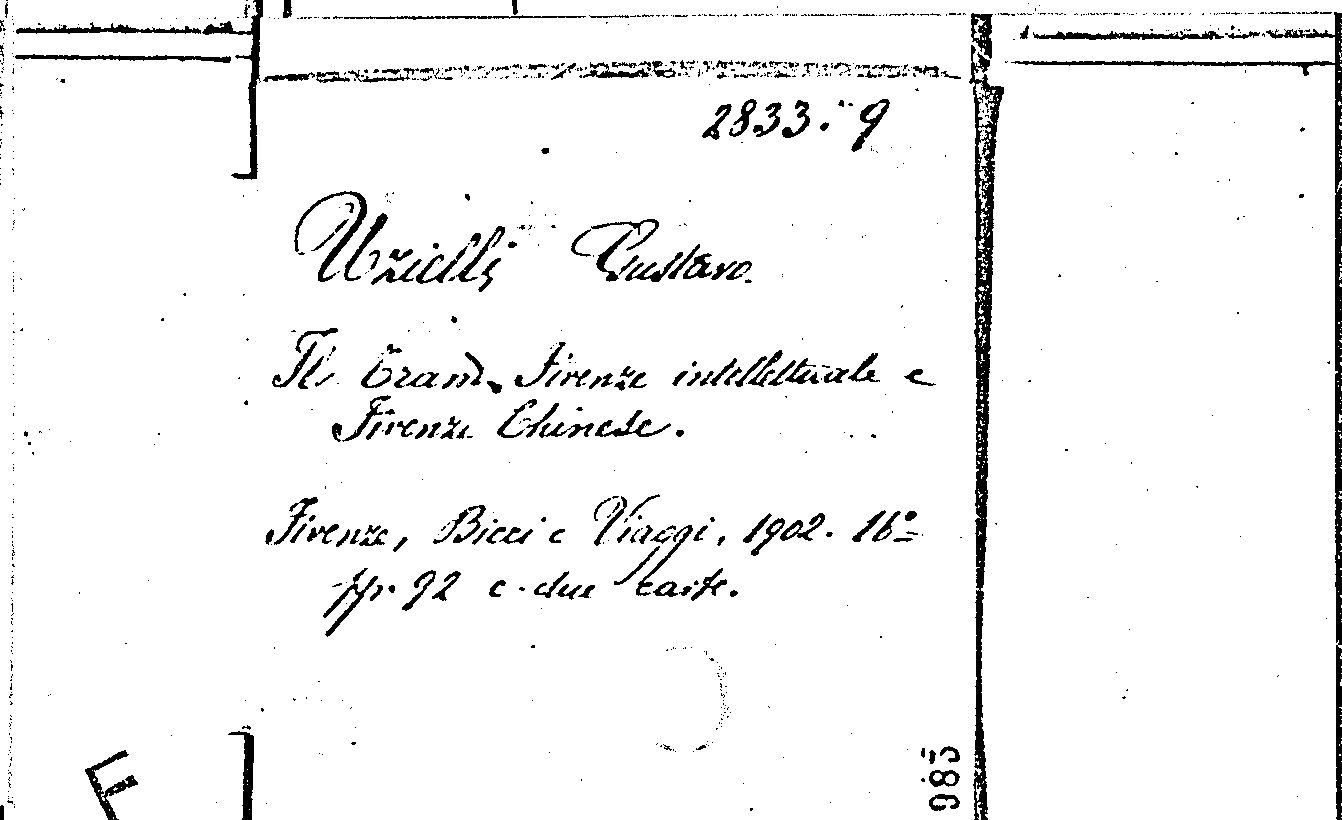 2833. 9
Uzielli Gustavo.
Il Tram, Firenze intellettuale e
Firenze Chinese.
Firenze, Bicci e Viaggi, 1902. 16º
pp. 92 e due carte.
985